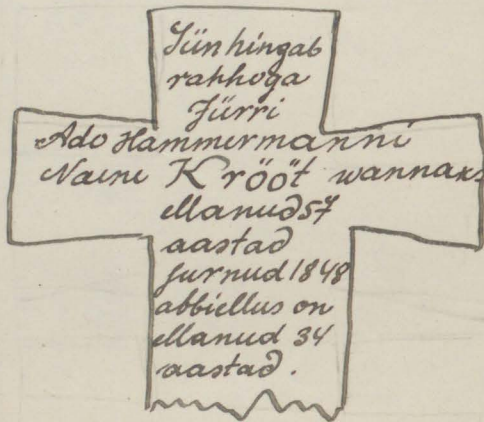 Siin hingab
rahhoga
Jürri
Ado Hammermanni
Naene Krööt wannaks
ellanud 57
aastad
surnud 1848
abbiellus on
ellanud 34
aastad.